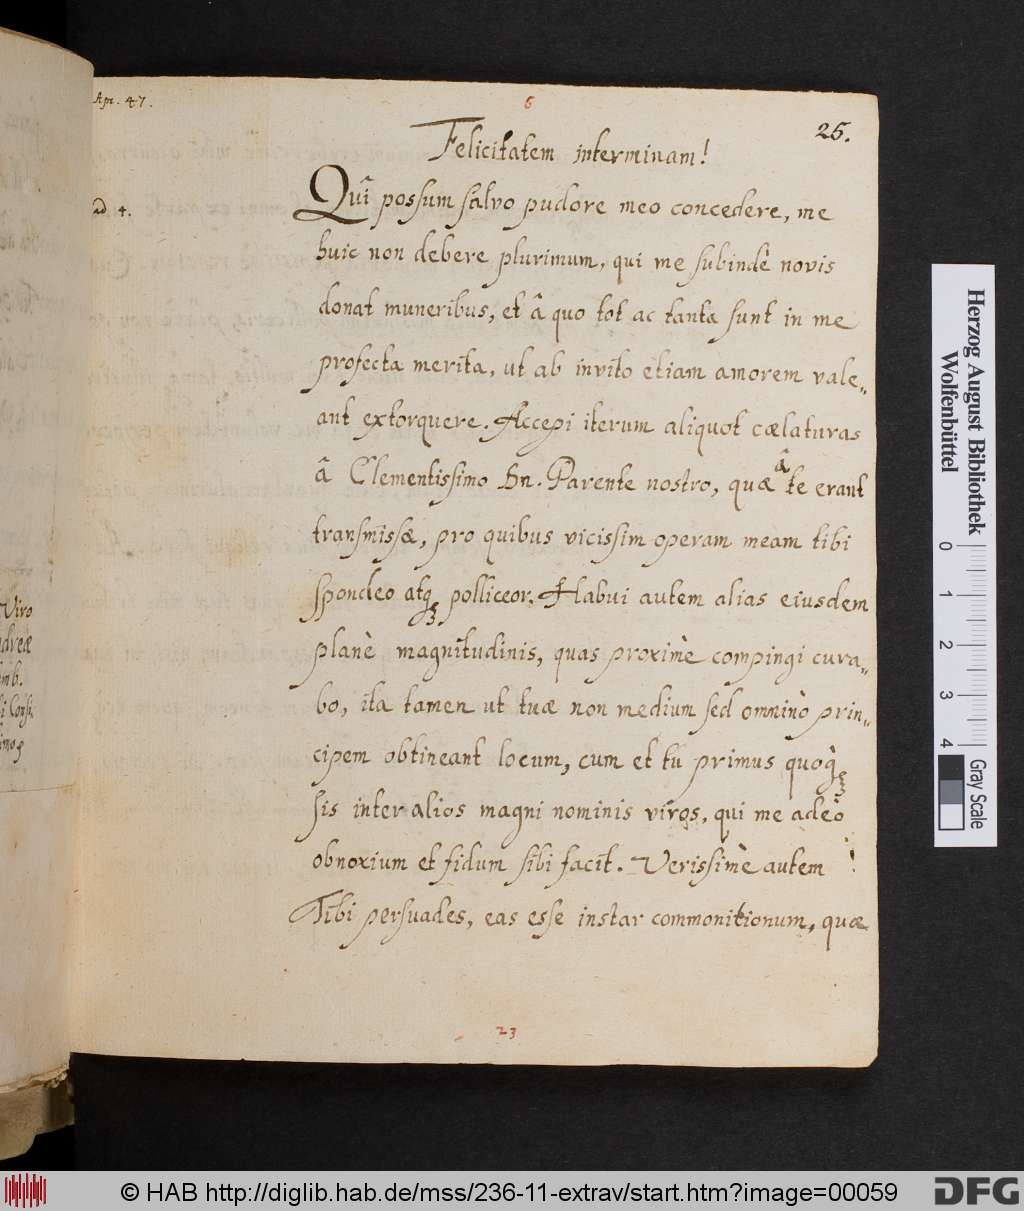 Apr. 47.
6
25.
Felicitatem interminam!
ad 4.
Quî possum salvo pudore meo concedere, me
huic non debere plurimum, qui me subindè novis
donat muneribus, et â quo tot ac tanta sunt in me
profecta merita, ut ab invito etiam amorem vale„
ant extorquere. Accepi iterum aliquot cælaturas
â Clementissimo Dn. Parente nostro, quæ â te erant
transmissæ, pro quibus vicissim operam meam tibi
spondeo atq₃ polliceor. Habui autem alias eiusdem
planè magnitudinis, quas proximè compingi cura„
bo, ita tamen ut tuæ non medium sed omninò prin„
cipem obtineant locum, cum et tu primus quoq₃
sis inter alios magni nominis viros, qui me adeò
obnoxium et fidum sibi facit. Verissimè autem
Tibi persuades, eas esse instar commonitionum, quæ
23
Viro
dreæ
mb.
Herzog August Bibliothek
Wolfenbüttel
0 1 2 3 4
Gray Scale
© HAB http://diglib.hab.de/mss/236-11-extrav/start.htm?image=00059
DFG